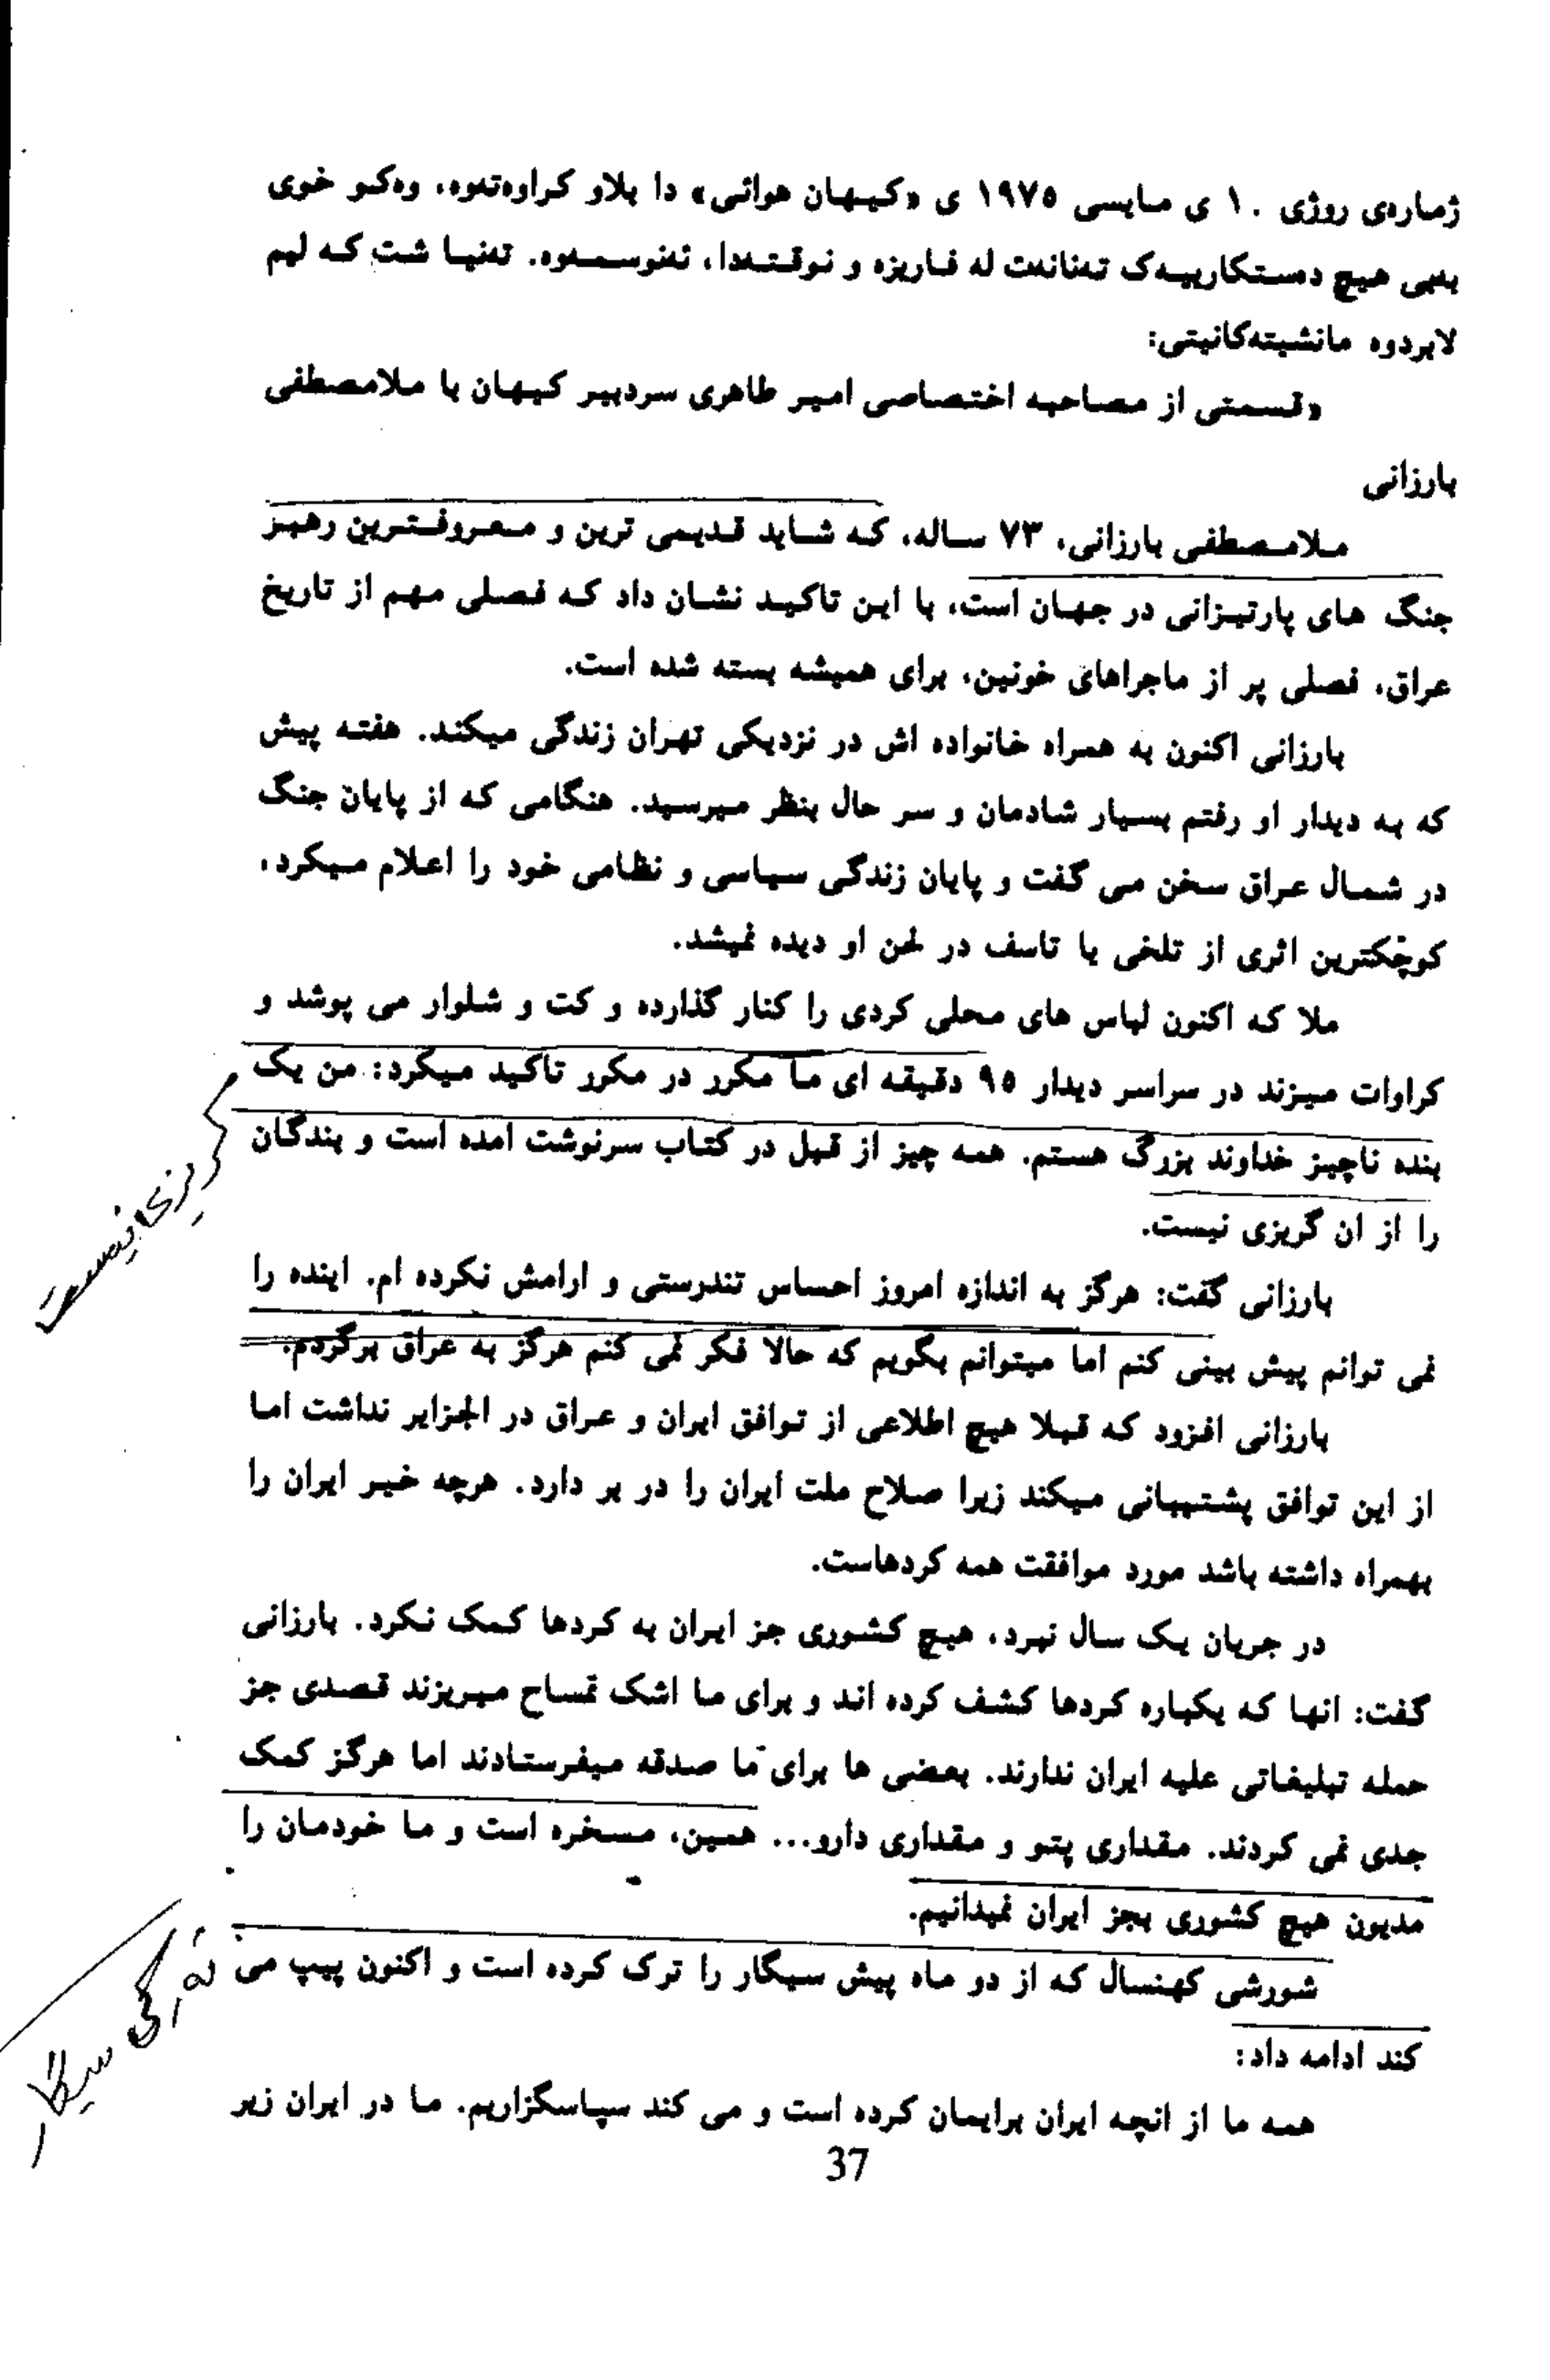 ژماره‌ی روژی ١٠ ی مایسی ١٩٧٥ ی «کیهان هوائی» دا بلاو کراوه‌ته‌وه، وه‌کو خوی
به‌بی هیچ ده‌ستکارییه‌ک ته‌نانه‌ت له فاریزه و نوقته‌دا، ئه‌نوسمه‌وه. ته‌نیا شت که لیم
لابردوه مانشیته‌کانیتی:
«قسمتی از مصاحبه اختصاصی امیر طاهری سردبیر کیهان با ملامصطفی
بارزانی
ملامصطفی بارزانی، ٧٣ ساله، که شاید قدیمی ترین و معروفترین رهبر
جنگ های پارتیزانی در جهان است، با این تاکید نشان داد که فصلی مهم از تاریخ
عراق، فصلی پر از ماجراهای خونین، برای همیشه بسته شده است.
بارزانی اکنون به همراه خانواده اش در نزدیکی تهران زندگی میکند. هفته پیش
که به دیدار او رفتم بسیار شادمان و سر حال بنظر میرسید. هنگامی که از پایان جنگ
در شمال عراق سخن می گفت و پایان زندگی سیاسی و نظامی خود را اعلام میکرد،
کوچکترین اثری از تلخی یا تاسف در لحن او دیده نمیشد.
ملا که اکنون لباس های محلی کردی را کنار گذارده و کت و شلوار می پوشد و
کراوات میزند در سراسر دیدار ٩٥ دقیقه ای ما مکرر در مکرر تاکید میکرد: من یک
بنده ناچیز خداوند بزرگ هستم. همه چیز از قبل در کتاب سرنوشت امده است و بندگان
را از ان گریزی نیست.
بارزانی گفت: هرگز به اندازه امروز احساس تندرستی و ارامش نکرده ام. اینده را
نمی توانم پیش بینی کنم اما میتوانم بگویم که حالا فکر نمی کنم هرگز به عراق برگردم.
بارزانی افزود که قبلا هیچ اطلاعی از توافق ایران و عراق در الجزایر نداشت اما
از این توافق پشتیبانی میکند زیرا صلاح ملت ایران را در بر دارد. هرچه خیر ایران را
بهمراه داشته باشد مورد موافقت همه کردهاست.
در جریان یک سال نبرد، هیچ کشوری جز ایران به کردها کمک نکرد. بارزانی
گفت: انها که یکباره کردها کشف کرده اند و برای ما اشک تمساح میریزند قصدی جز
حمله تبلیغاتی علیه ایران ندارند. بعضی ها برای ما صدقه میفرستادند اما هرگز کمک
جدی نمی کردند. مقداری پتو و مقداری دارو... همین، مسخره است و ما خودمان را
مدیون هیچ کشوری بجز ایران نمیدانیم.
شورشی کهنسال که از دو ماه پیش سیگار را ترک کرده است و اکنون پیپ می
کند ادامه داد:
همه ما از انچه ایران برایمان کرده است و می کند سپاسگزاریم. ما در ایران زیر
37